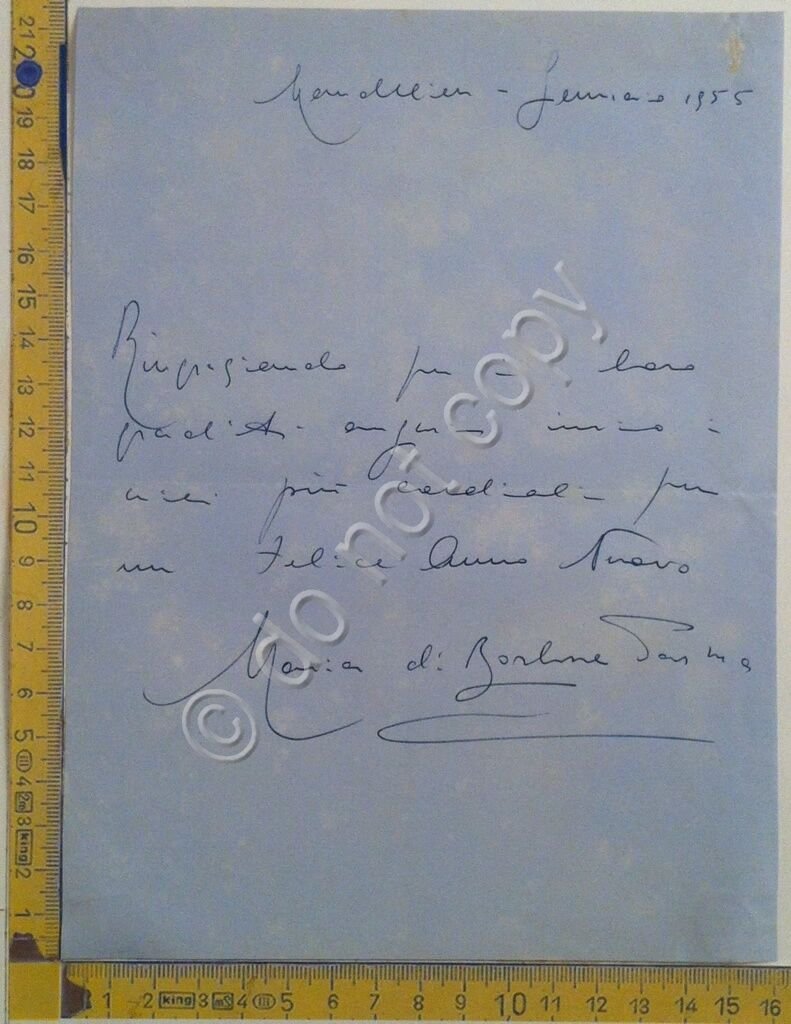 Mandelieu - Gennaio 1955
Ringraziando per i loro
graditi auguri invio i
miei più cordiali per
un Felice Anno Nuovo
Maria di Borbone Parma
© do not copy
21 20 19 18 17 16 15 14 13 12 11 10 9 8 7 6 5 4 2m 3 king 2 1
1 2 king 3 2m 4 III 5 6 7 8 9 10 11 12 13 14 15 16